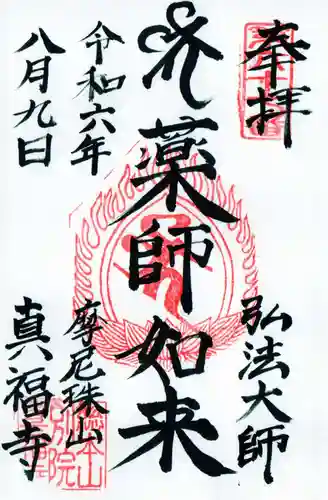 奉拝
弘法大師
薬師如来
摩尼珠山
真福寺
令和六年
八月九日
別院